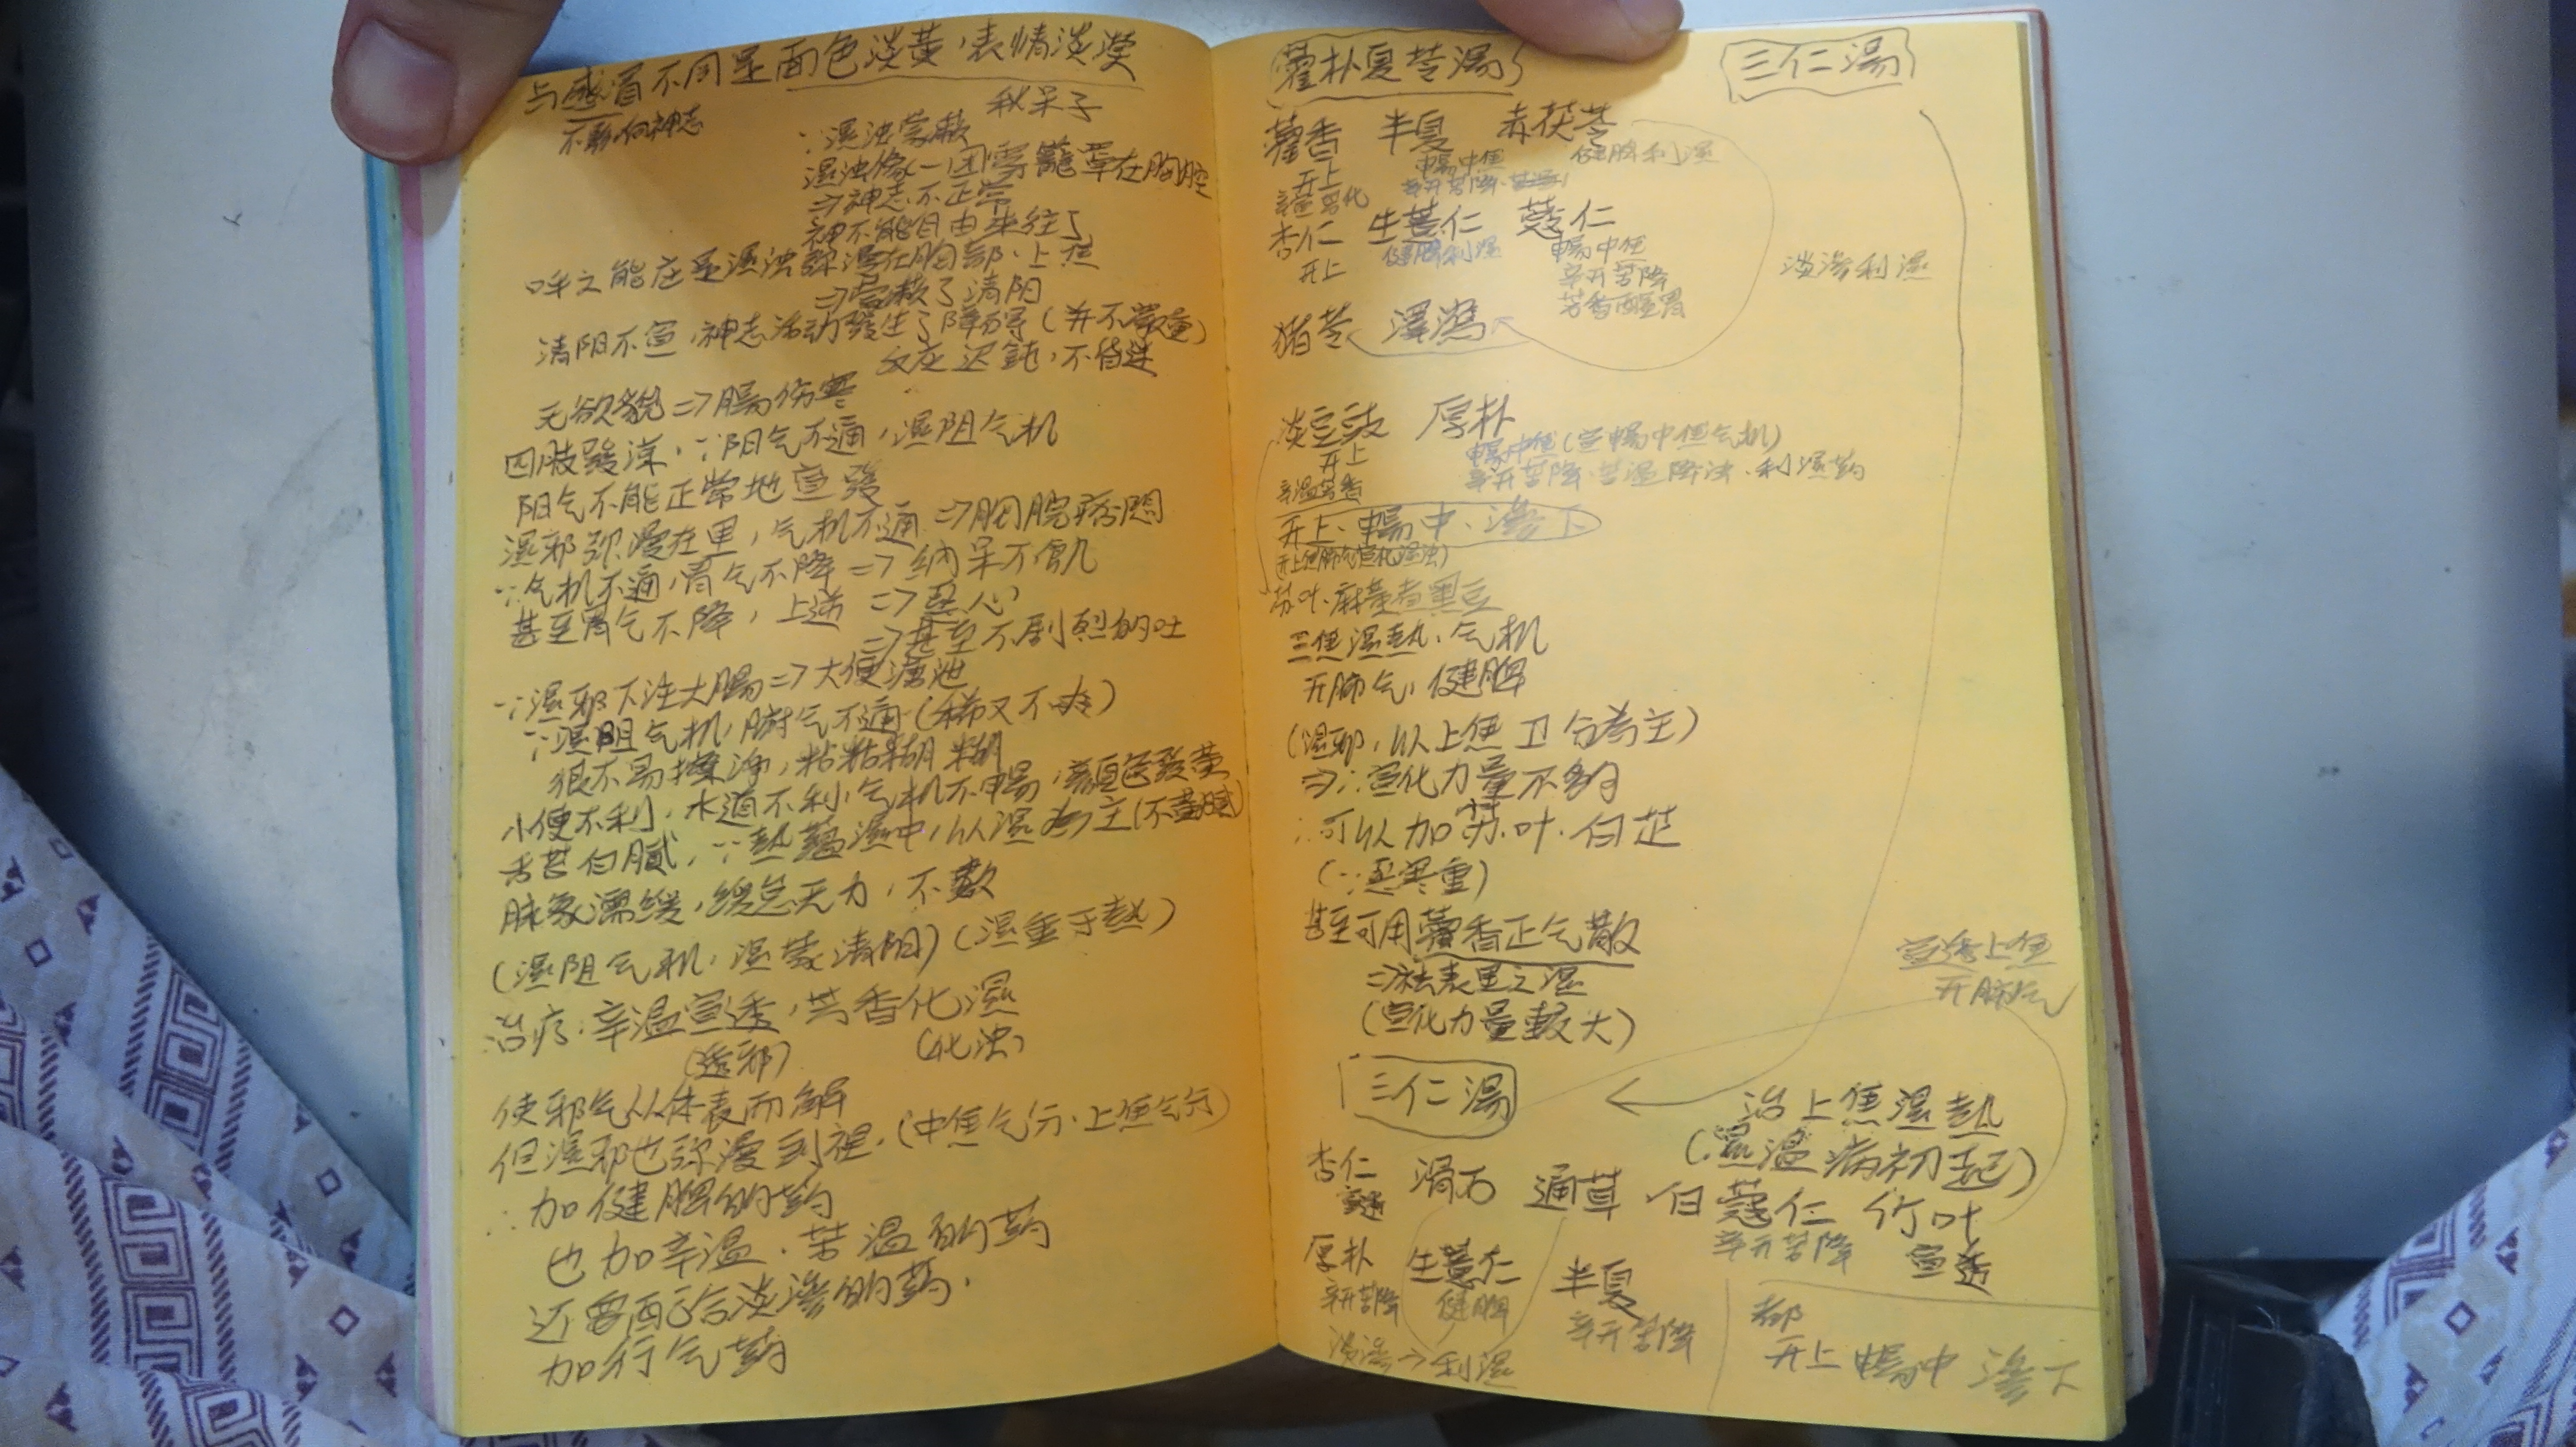 与感冒不同是面色淡黄，表情淡漠
不影响神志
秋呆子
∵湿浊蒙蔽
湿浊像一团雾籠罩在胸腔
⇒神志不正常
神不能自由來往了
呼之能应是湿浊弥漫在胸部、上焦
⇒蒙蔽了清阳
清阳不宣，神志活动發生了障碍(并不嚴重)
反应迟鈍，不
无欲貌⇒腸伤寒
四肢發涼，∵阳气不通，濕阻气机
阳气不能正常地宣發
濕邪弥漫在里，气机不通⇒胸脘痞悶
∵气机不通，胃气不降⇒纳呆不飢
甚至胃气不降，上逆⇒恶心
⇒甚至不剧烈的吐
∵濕邪下注大腸⇒大便溏泄
∵濕阻气机，腑气不通(稀又不爽)
很不易擦净，粘粘糊糊
小便不利，水道不利，气机不暢，颜色發黄
舌苔白腻，∵熱蘊濕中，以濕为主(不黄腻)
脉象濡緩，緩怠无力，不數
(濕阻气机，濕蒙清阳)(濕重于熱)
治疗：辛温宣透，芳香化濕
(透邪) (化浊)
使邪气从体表而解
但濕邪也弥漫到裡，(中焦气分、上焦气分)
∴加健脾的药
也加辛温、苦温的药
还要配合淡滲的药，
加行气药
藿朴夏苓湯
三仁湯
藿香 半夏 赤茯苓
开上 暢中焦 健脾利濕
辛温芳化 辛开苦降
杏仁 生薏仁 蔻仁
开上 健脾利濕 暢中焦
辛开苦降
芳香醒胃
淡滲利濕
猪苓 澤瀉
淡豆豉 厚朴
开上 暢中焦(宣暢中焦气机)
辛温芳香 辛开苦降、苦温降浊、利濕药
开上、暢中、滲下
(开上焦肺气宣化濕浊)
苏叶、麻黄煮黑豆
三焦濕熱、气机
开肺气，健脾
(濕邪，以上焦卫分为主)
⇒∵宣化力量不夠
∴可以加苏叶、白芷
(∵恶寒重)
甚至可用藿香正气散
⇒祛表里之濕
(宣化力量較大)
宣透上焦
开肺气
三仁湯
治上焦濕熱
(濕温病初起)
杏仁 滑石 通草 白蔻仁 竹叶
宣透 辛开苦降 宣透
厚朴 生薏仁 半夏
辛开苦降 健脾 辛开苦降
淡滲→利濕
都
开上 暢中 滲下